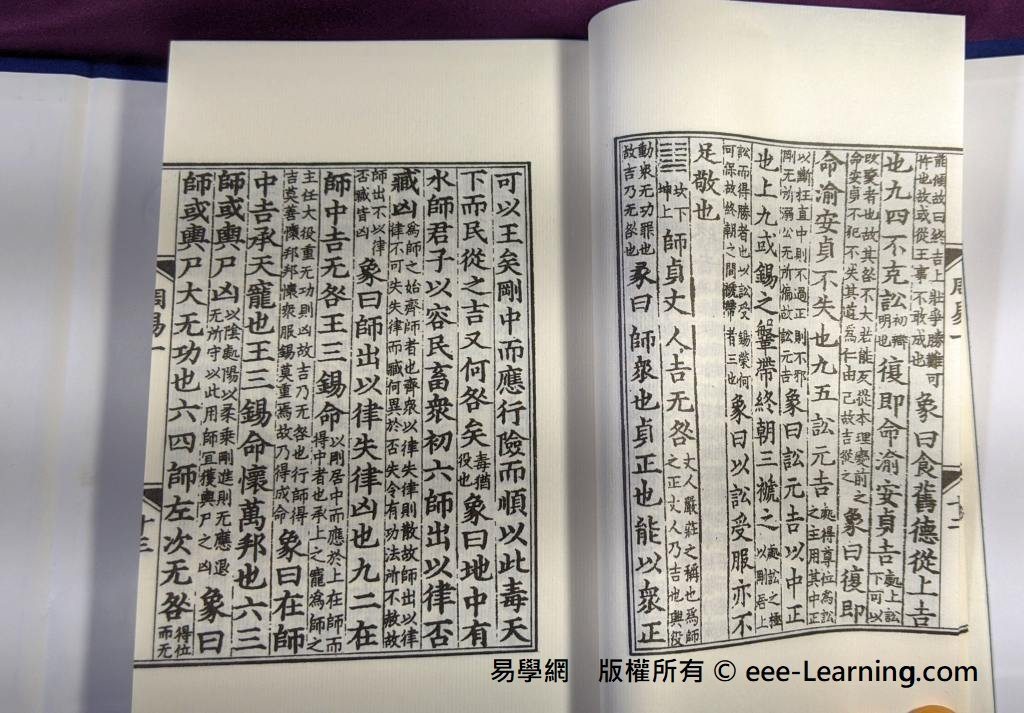 能傾故曰終吉上壯爭勝難可忤也故或從王事不敢成也象曰食舊德從上吉
也九四不克訟初辯明也復即命渝安貞吉處上訟下可以
改變者也故其咎不大若能反從本理變前之命安貞不犯不失其道為仁由己故吉從之象曰復即
命渝安貞不失也九五訟元吉處得尊位為訟之主用其中正
以斷枉直中則不過正則不邪剛无所溺公无所偏故訟元吉象曰訟元吉以中正
也上九或錫之鞶帶終朝三褫之處訟之極以剛居上
訟而得勝者也以訟受錫榮何可保故終朝之間褫帶者三也象曰以訟受服亦不
足敬也
䷆坎下坤上師貞丈人吉无咎丈人嚴莊之稱也為師之正丈人乃吉也興役
動衆无功罪也故吉乃无咎也彖曰師衆也貞正也能以衆正
周易一
十二
可以王矣剛中而應行險而順以此毒天
下而民從之吉又何咎矣毒猶役也象曰地中有
水師君子以容民畜衆初六師出以律否
臧凶為師之始齊師者也齊衆以律失律則散故師出以律律不可失失律而臧何異於否失令有功法所不赦故
師出不以律否臧皆凶象曰師出以律失律凶也九二在
師中吉无咎王三錫命以剛居中而應於上在師而得中者也承上之寵為師之
主任大役重无功則凶故吉乃无咎也行師得吉莫善懷邦邦懷衆服錫莫重焉故乃得成命象曰在師
中吉承天寵也王三錫命懷萬邦也六三
師或輿尸凶以陰處陽以柔乘剛進則无應退无所守以此用師宜獲輿尸之凶象曰
師或輿尸大无功也六四師左次无咎得位而无
周易一
十三
易學網 版權所有 © eee-Learning.com